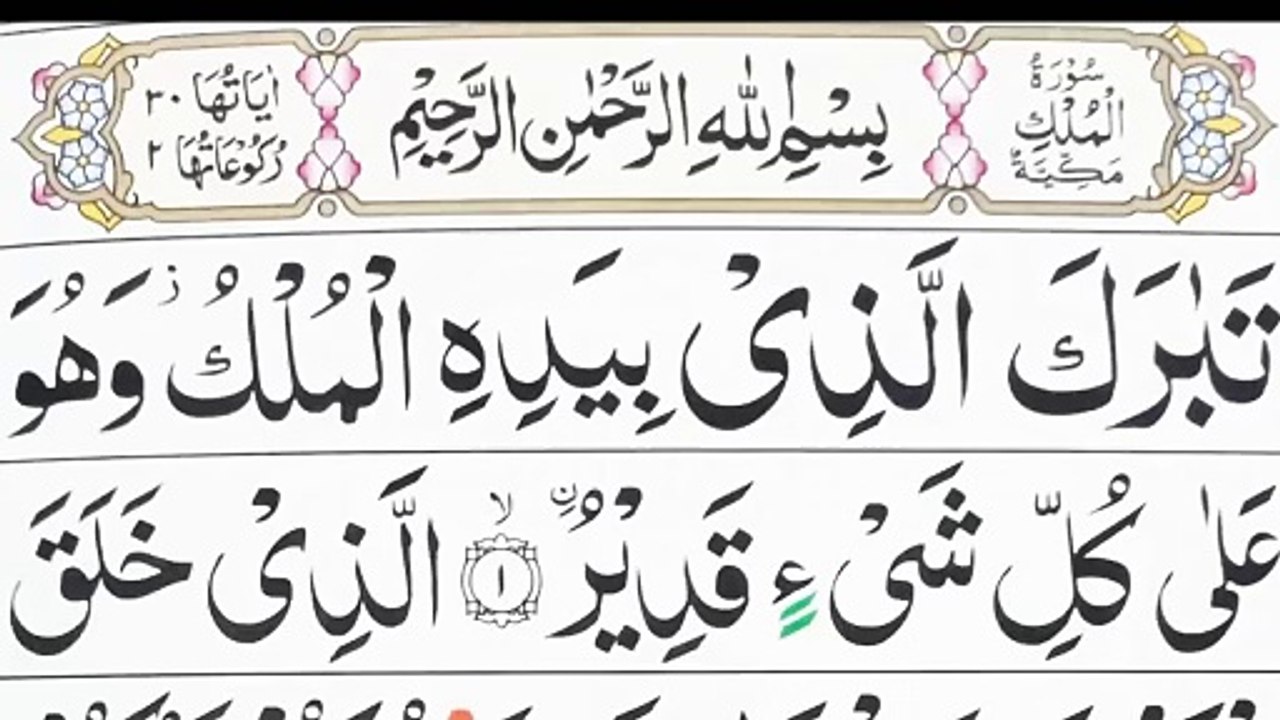 سُوْرَةُ
الْمُلْكِ
مَكِّيَّةٌ
بِسْمِ اللّٰهِ الرَّحْمٰنِ الرَّحِيْمِ
اٰيَاتُهَا ٣٠
رُكُوْعَاتُهَا ٢
تَبٰرَكَ الَّذِیْ بِيَدِهِ الْمُلْكُ ز وَهُوَ
عَلٰى كُلِّ شَیْءٍ قَدِيْرُ ۨ ۙ ﴿١﴾ الَّذِیْ خَلَقَ